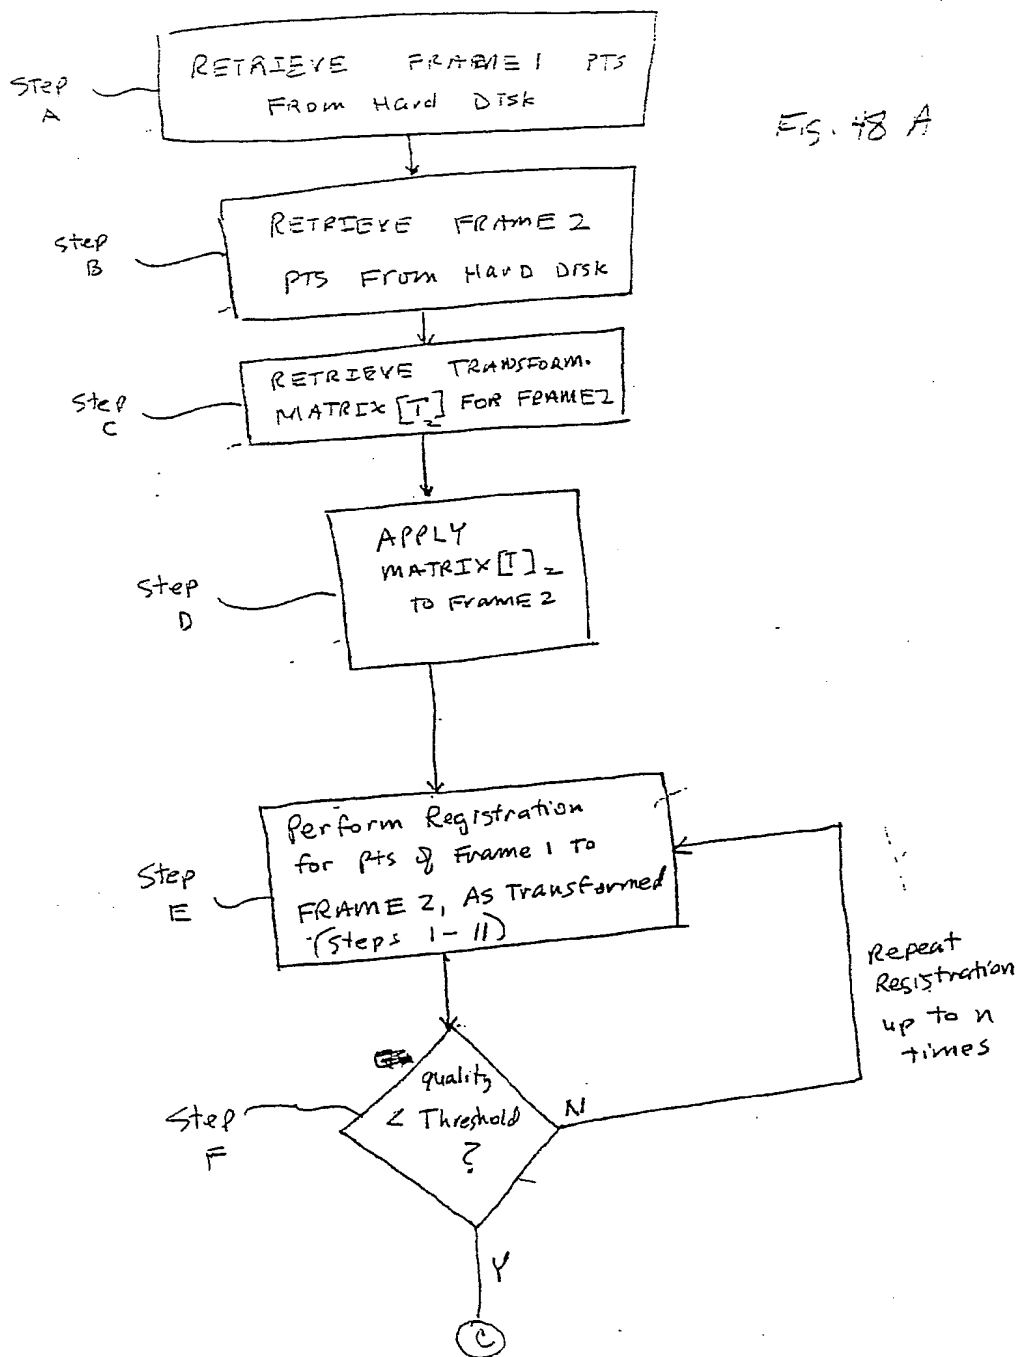 Fig. 48 A
Step
A
RETRIEVE FRAME 1 PTS
FROM Hard Disk
Step
B
RETRIEVE FRAME 2
PTS FROM HARD DISK
Step
C
RETRIEVE TRANSFORM.
MATRIX [T2] FOR FRAME 2
Step
D
APPLY
MATRIX [T]2
TO Frame 2
Step
E
Perform Registration
for pts of Frame 1 To
FRAME 2, As Transformed
(Steps 1-11)
Repeat
Registration
up to n
times
Step
F
quality
< Threshold
?
N
Y
C